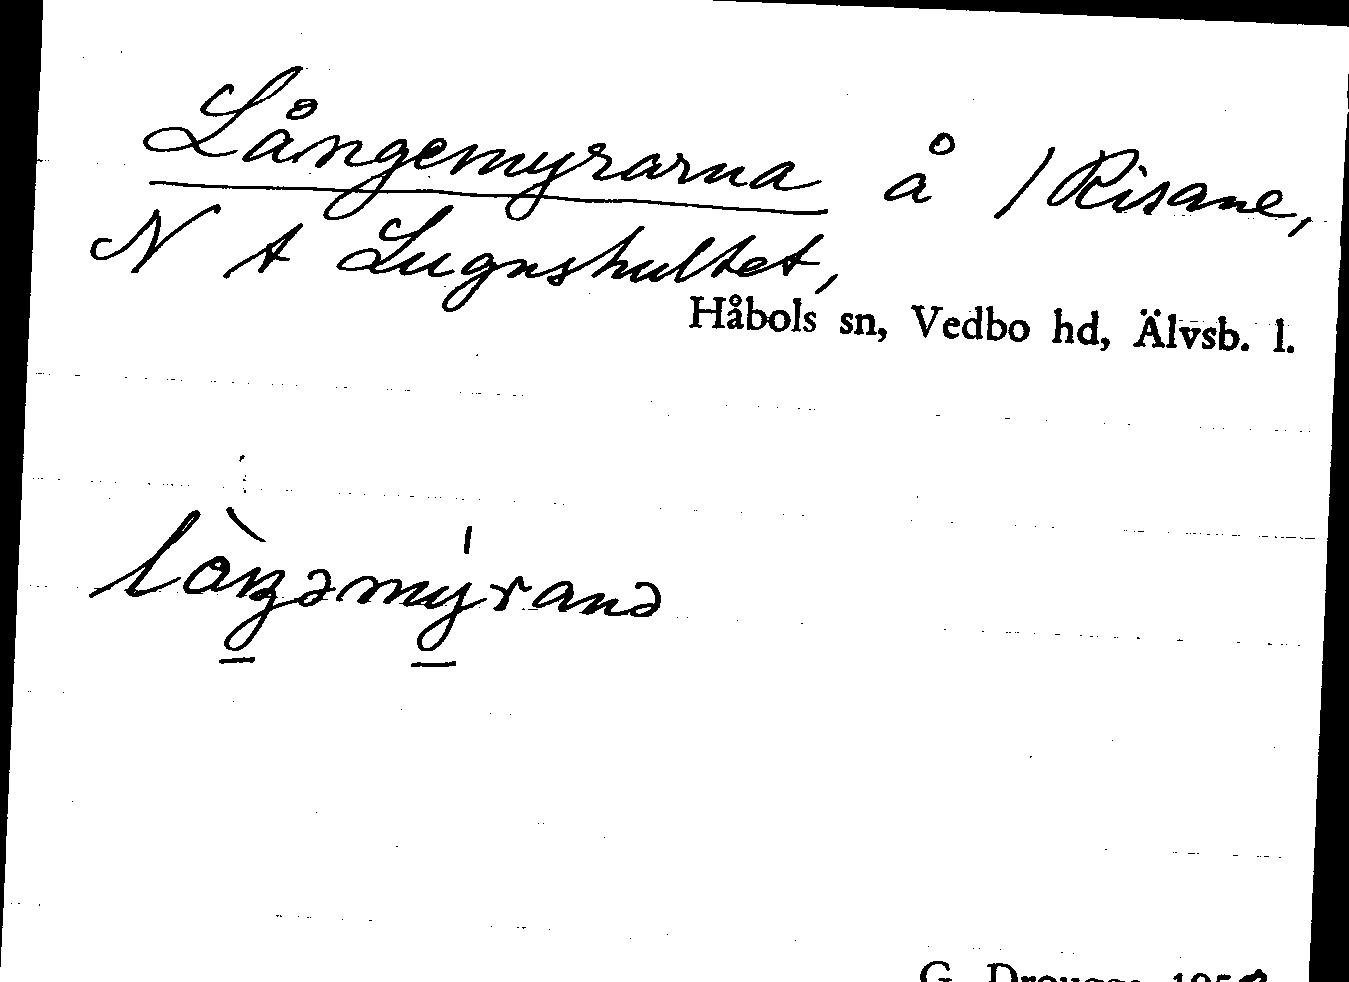 Långemyrarna å /Risane,
N t Lugnshultet,
Håbols sn, Vedbo hd, Älvsb. l.
lòŋəmýranə
G. Drougge